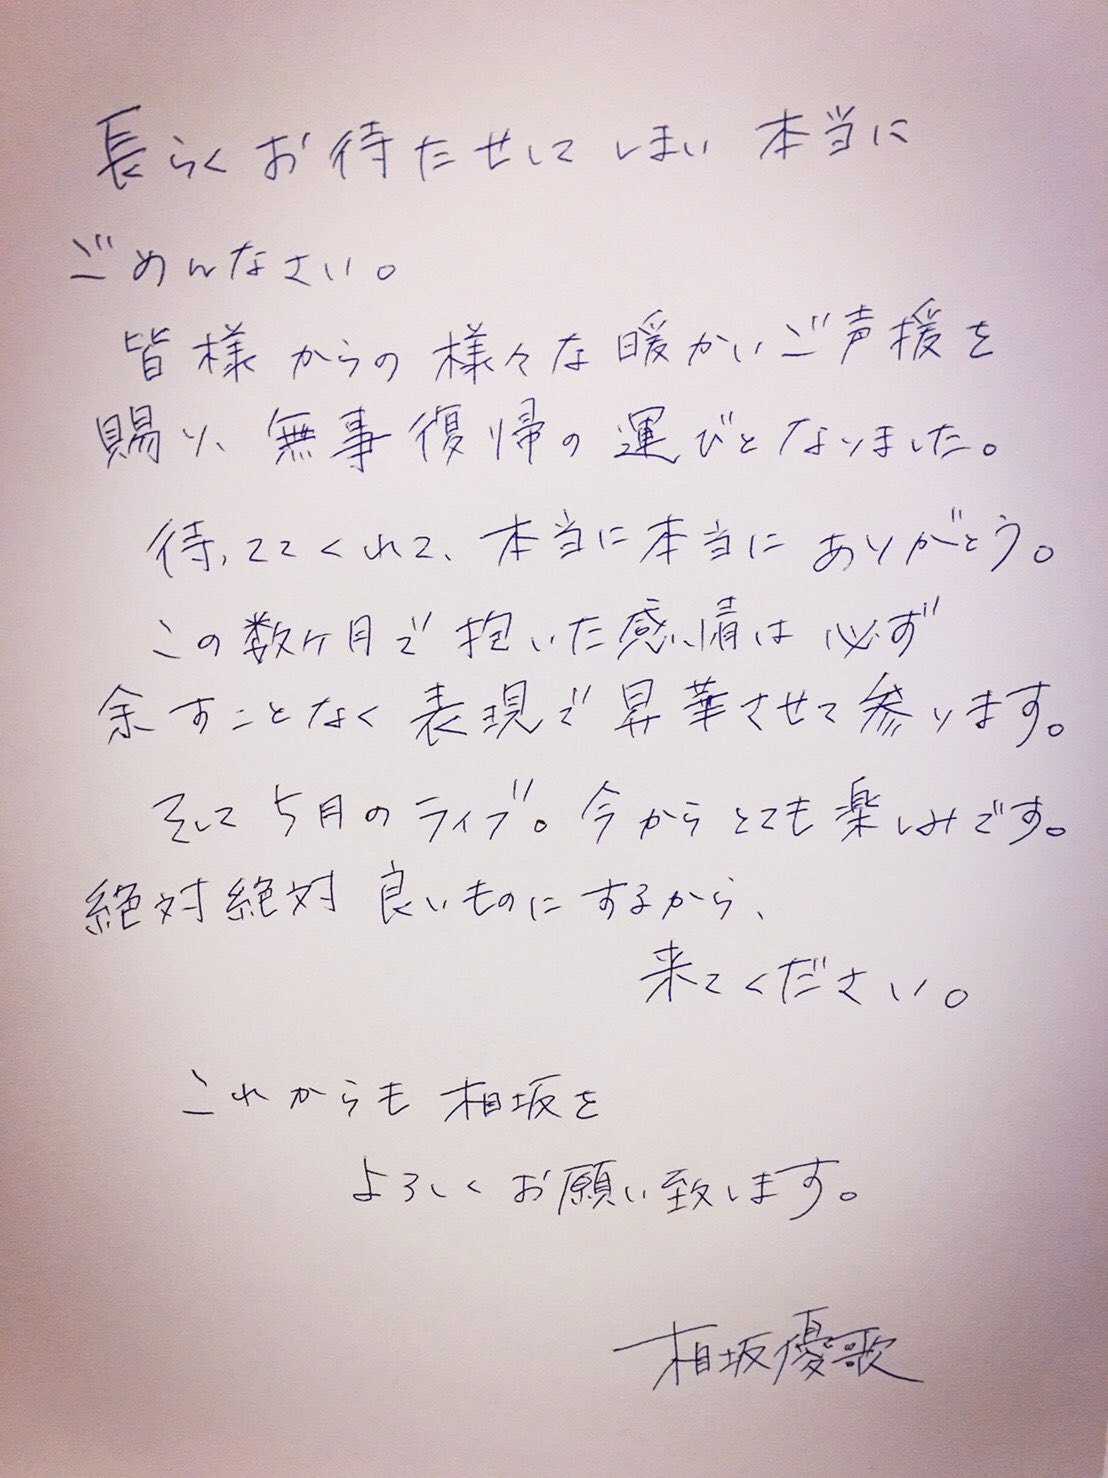 長らくお待たせしてしまい 本当に
ごめんなさい。
皆様からの様々な暖かいご声援を
賜り、無事復帰の運びとなりました。
待ってくれて、本当に本当にありがとう。
この数ヶ月で抱いた感情は必ず
余すことなく表現で昇華させて参ります。
そして5月のライブ。今からとても楽しみです。
絶対絶対良いものにするから、
来てください。
これからも相坂を
よろしくお願い致します。
相坂優歌